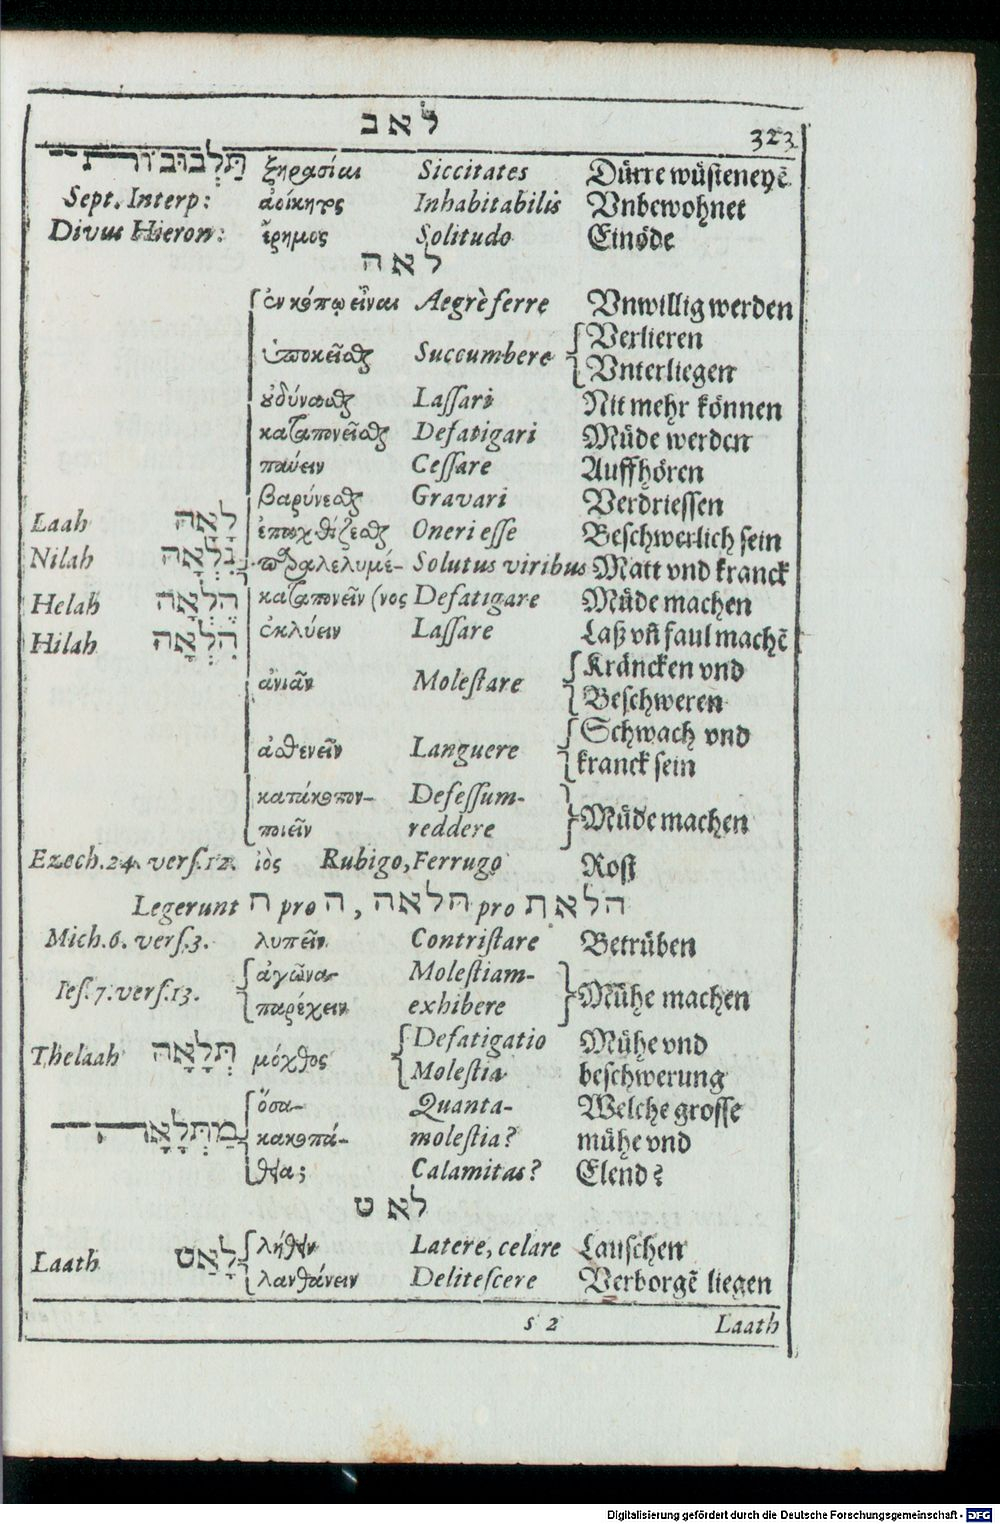 לאב 323
תַּלְבּוּבוֹרת ξηρασίαι Siccitates Dürre wüsteneyẽ
Sept. Interp: ἀοίκητος Inhabitabilis Vnbewohnet
Divus Hieron: ἔρημος Solitudo Einöde
לאה
ἐν κόπῳ εἶναι Aegrè ferre Vnwillig werden
ὑποκεῖσθαι Succumbere Verlieren
Vnterliegen
ὀδύνασθαι Laſſari Nit mehr können
καταπονεῖσθαι Defatigari Müde werden
παύειν Ceſſare Auffhören
βαρύνεσθαι Gravari Verdrieſſen
Laah לָאָה ἐπαχθίζεσθαι Oneri eſſe Beſchwerlich ſein
Nilah נִלְאָה παραλελυμέ- Solutus viribus Matt vnd kranck
Helah הֶלְאָה καταπονεῖν (νος Defatigare Müde machen
Hilah הִלְאָה ἐκλύειν Laſſare Laß vñ faul machẽ
ἀνιᾶν Moleſtare Kräncken vnd
Beſchweren
ἀσθενεῖν Languere Schwach vnd
kranck ſein
κατάκοπον- Defeſſum- Müde machen
ποιεῖν reddere
Ezech. 24. verſ. 12. ἰὸς Rubigo, Ferrugo Roſt
Legerunt ח pro ה, חלאה pro הלאת
Mich. 6. verſ. 3. λυπεῖν Contriſtare Betrüben
Ieſ. 7. verſ. 13. ἀγῶνα- Moleſtiam- Mühe machen
παρέχειν exhibere
Thelaah תְּלָאָה μόχθος Defatigatio Mühe vnd
Moleſtia beſchwerung
ὅσα- Quanta- Welche groſſe
מַתְּלָאָה κακοπά- moleſtia? mühe vnd
θεια; Calamitas? Elend?
לאט
Laath לָאַט λήθειν Latere, celare Lauſchen
λανθάνειν Deliteſcere Verborgẽ liegen
s 2 Laath
Digitalisierung gefördert durch die Deutsche Forschungsgemeinschaft - DFG